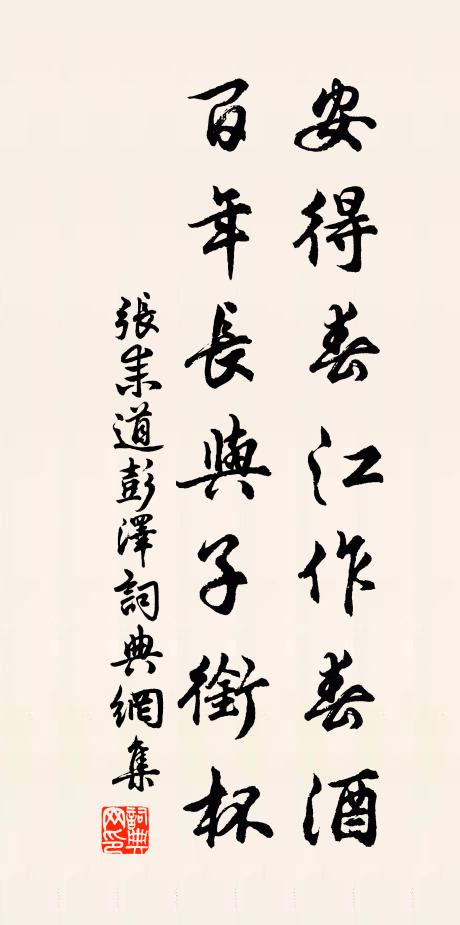 安得春江作春酒
百年長與子銜杯
張耒道彭澤詞典網集
詞典網印